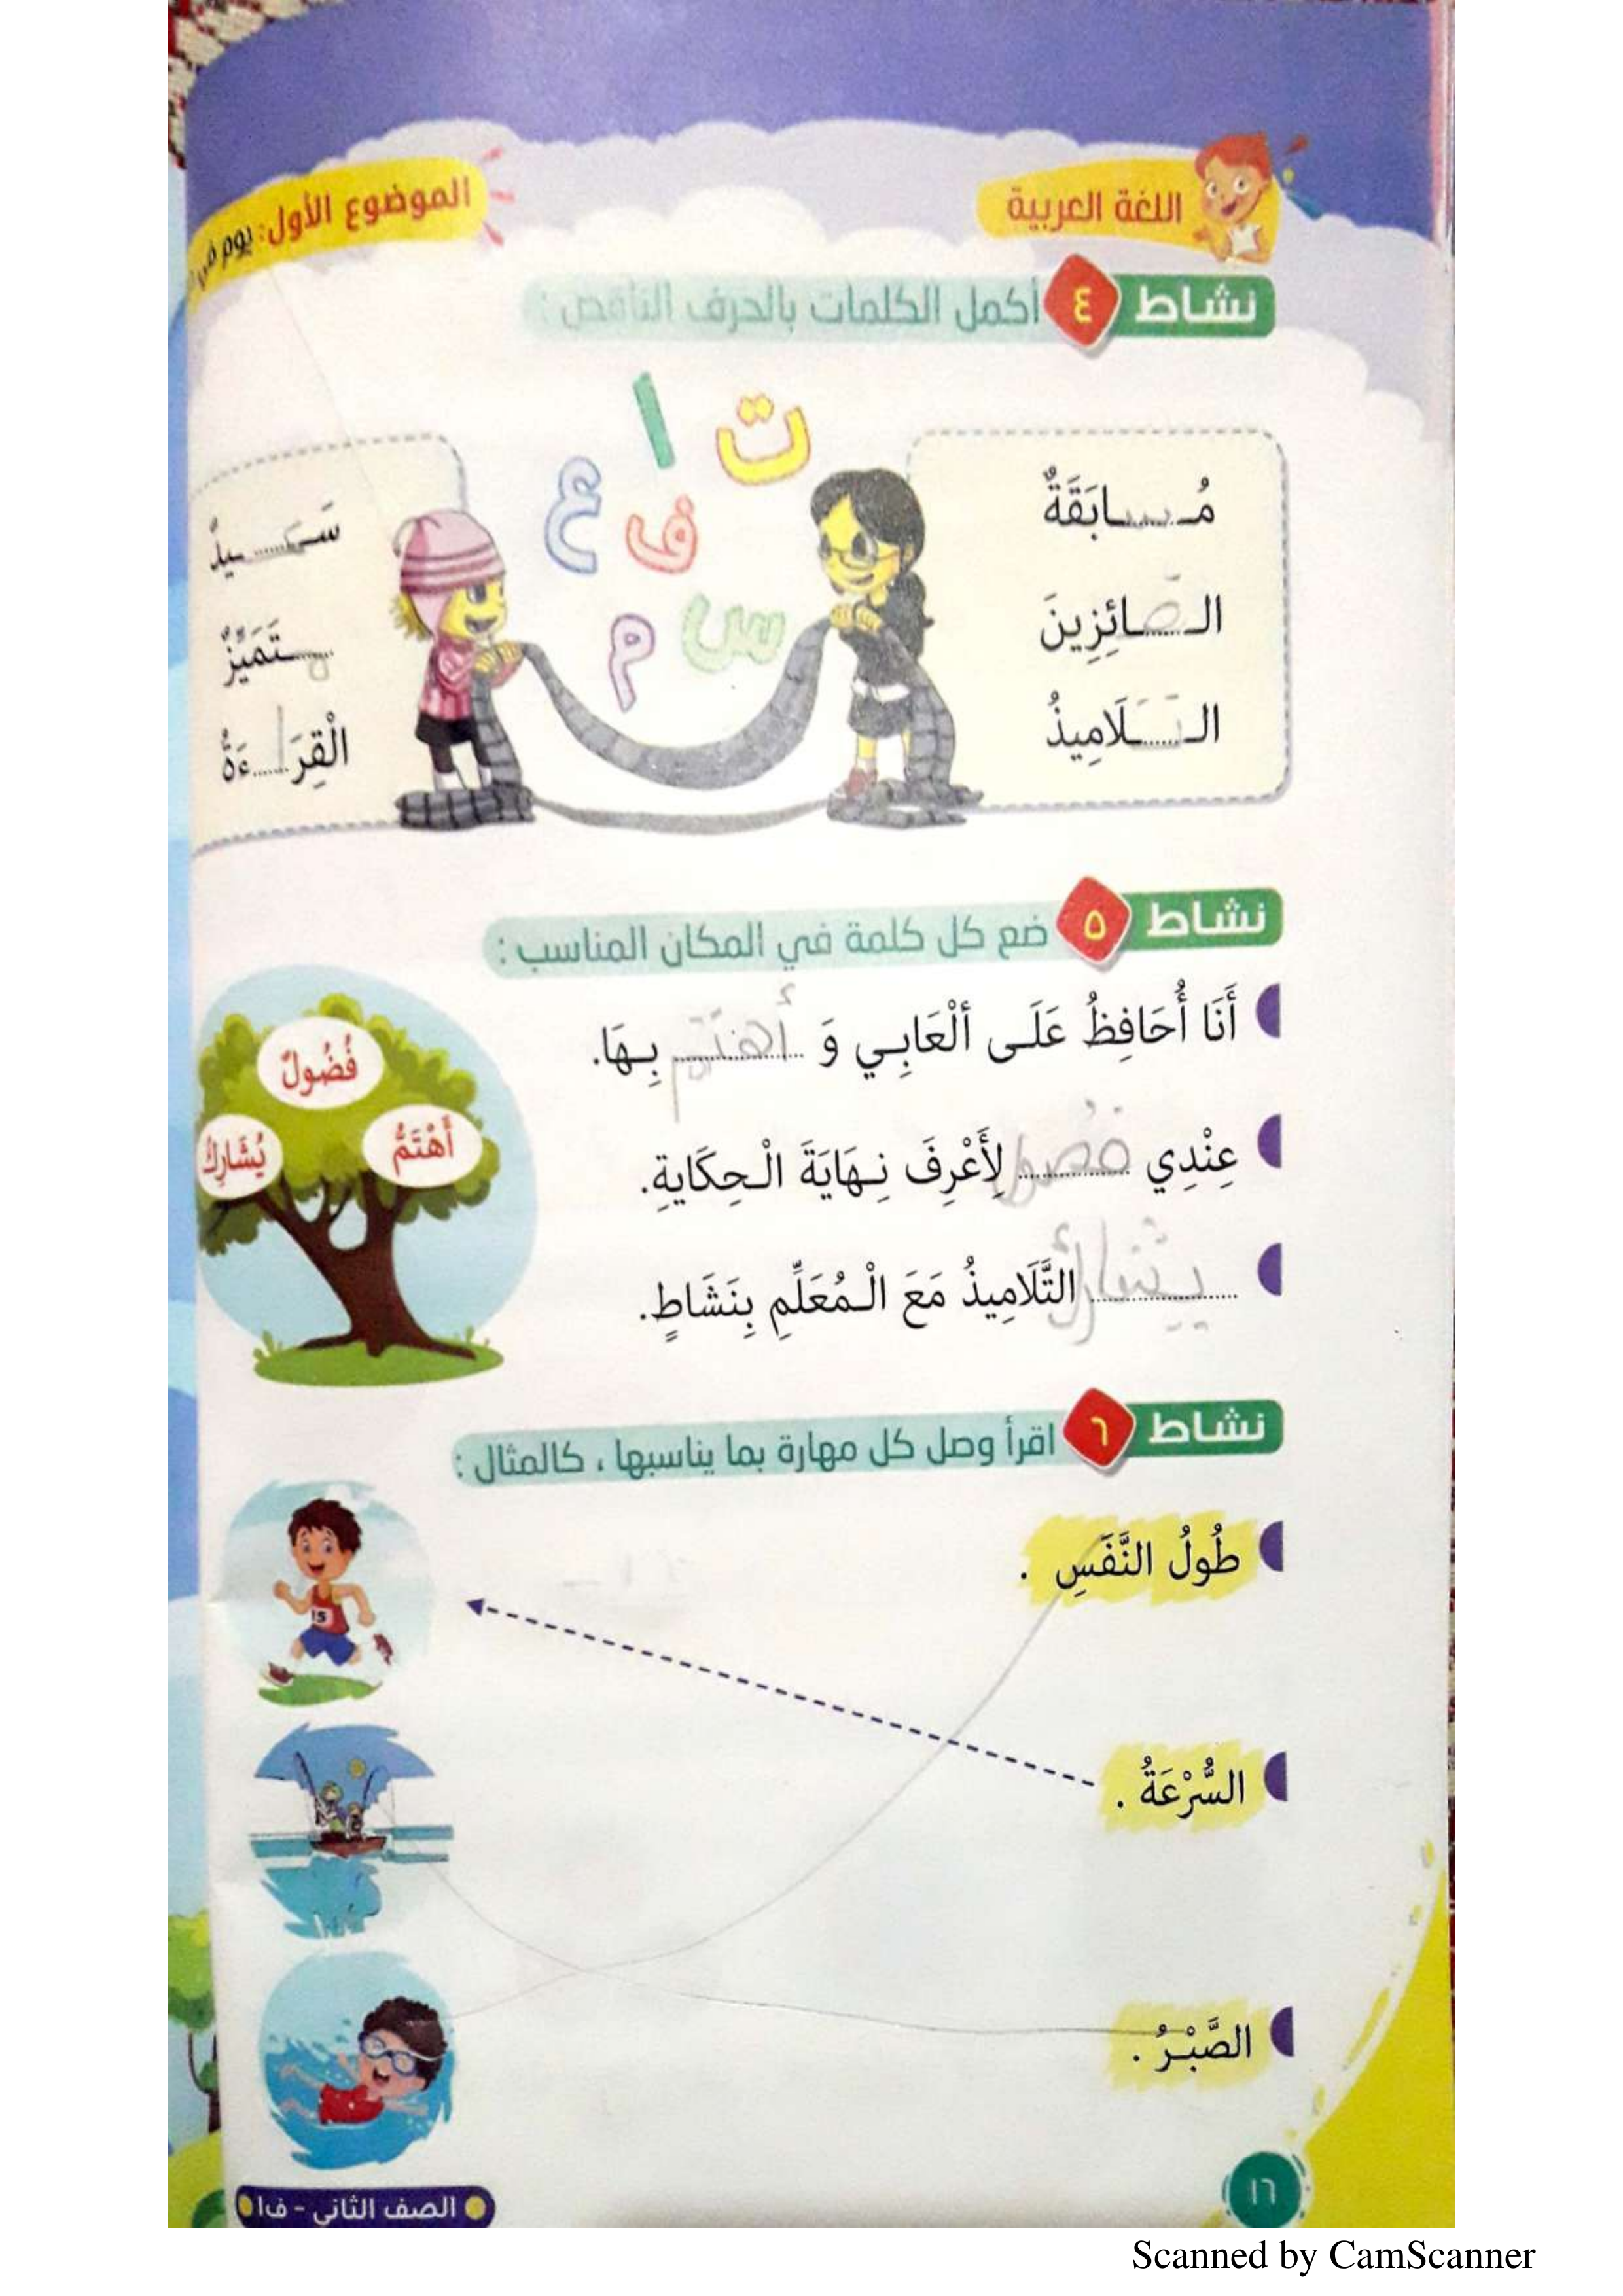 اللغة العربية
الموضوع الأول: يوم في
نشاط ٤ أكمل الكلمات بالحرف الناقص :
ت ا ع ف س م
مُسابَقَةٌ
الفائِزِينَ
التلَامِيذُ
سَعيدٌ
متَمَيِّزٌ
الْقِرَاءَةُ
نشاط ٥ ضع كل كلمة في المكان المناسب :
أَنَا أُحَافِظُ عَلَى ألْعَابِي وَ أهتم بِهَا.
عِنْدِي فضول لِأَعْرِفَ نِهَايَةَ الْحِكَايةِ.
يشارك التَّلَامِيذُ مَعَ الْمُعَلِّمِ بِنَشَاطٍ.
فُضُولٌ
أَهْتَمُّ
يُشَارِكُ
نشاط ٦ اقرأ وصل كل مهارة بما يناسبها ، كالمثال :
طُولُ النَّفَسِ .
السُّرْعَةُ .
الصَّبْرُ .
15
١٦
الصف الثاني - ف١
Scanned by CamScanner